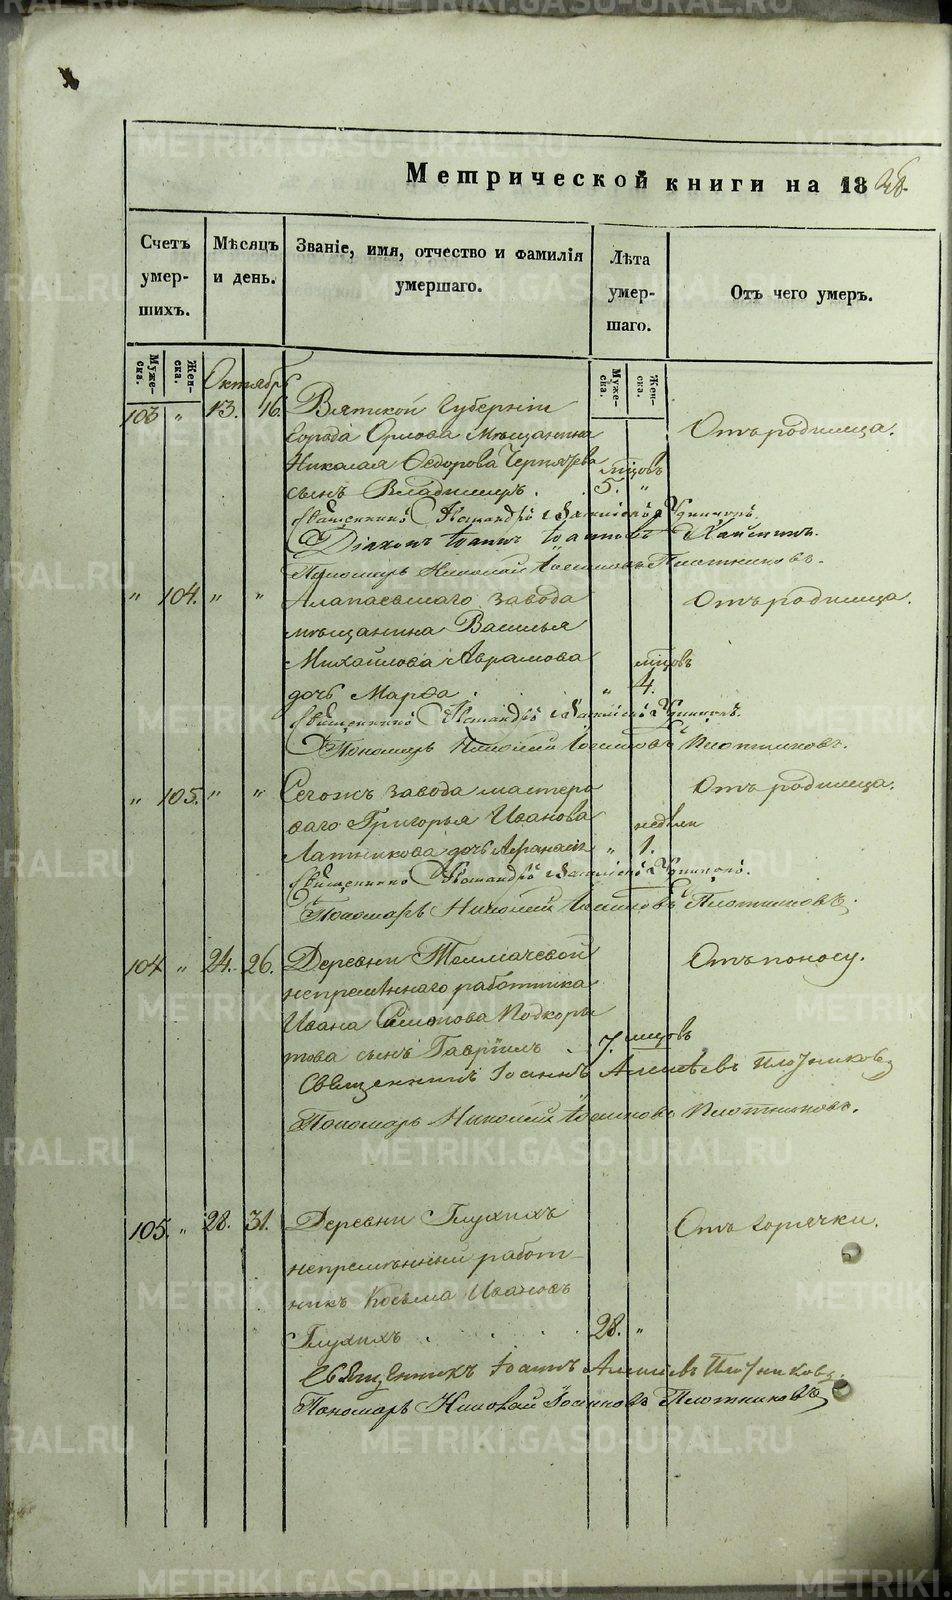 Метрической книги на 1846.
Счетъ умер- шихъ.
Мѣсяцъ и день.
Званіе, имя, отчество и фамилія умершаго.
Лѣта умер- шаго.
Отъ чего умеръ.
Муже- ска.
Жен- ска.
Муже- ска.
Жен- ска.
Октябрь
103 " 13. 16. Вятской Губерніи
Города Орлова Мѣщанина
Отъ родимца.
Николая Ѳедорова
мцовъ
сынъ Владимиръ. 5. "
Священникъ
Діаконъ Іоаннъ Іоанновъ
Пономарь Николай Іоанновъ Плотниковъ.
" 104. " " Алапаевскаго завода
Отъ родимца.
мѣщанина Василья
Михайлова Аврамова
мцовъ
дочь Марѳа. " 4.
Священникъ
Пономарь Николай Іоанновъ Плотниковъ.
" 105. " " Сегожъ завода мастеро
Отъ родимца.
ваго Григорья Иванова
недели
Латникова дочь " 1.
Священникъ
Пономарь Николай Іоанновъ Плотниковъ.
104 " 24. 26. Деревни Толмачевой
Отъ поносу.
непремѣннаго работника
Ивана Подкоры
това сынъ Гавріилъ 7. мцовъ
Священникъ Іоаннъ Алексѣевъ Плотниковъ
Пономарь Николай Іоанновъ Плотниковъ.
105. " 28. 31. Деревни Глухихъ
Отъ горячки.
непремѣнный работ-
никъ Косьма Ивановъ
Глухихъ . . . . 28. "
Священникъ Іоаннъ Алексѣевъ Плотниковъ.
Пономарь Николай Іоанновъ Плотниковъ
METRIKI.GASO-URAL.RU